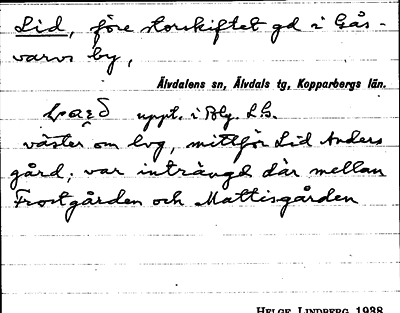 Lid, före storskiftet gd i Gås-
varvs by,
Älvdalens sn, Älvdals tg, Kopparbergs län.
uppt. i Blg. L G.
väster om lvg, mittför Lid Anders
gård; var inträngd där mellan
Frostgården och Mattisgården
HELGE LINDBERG 1938